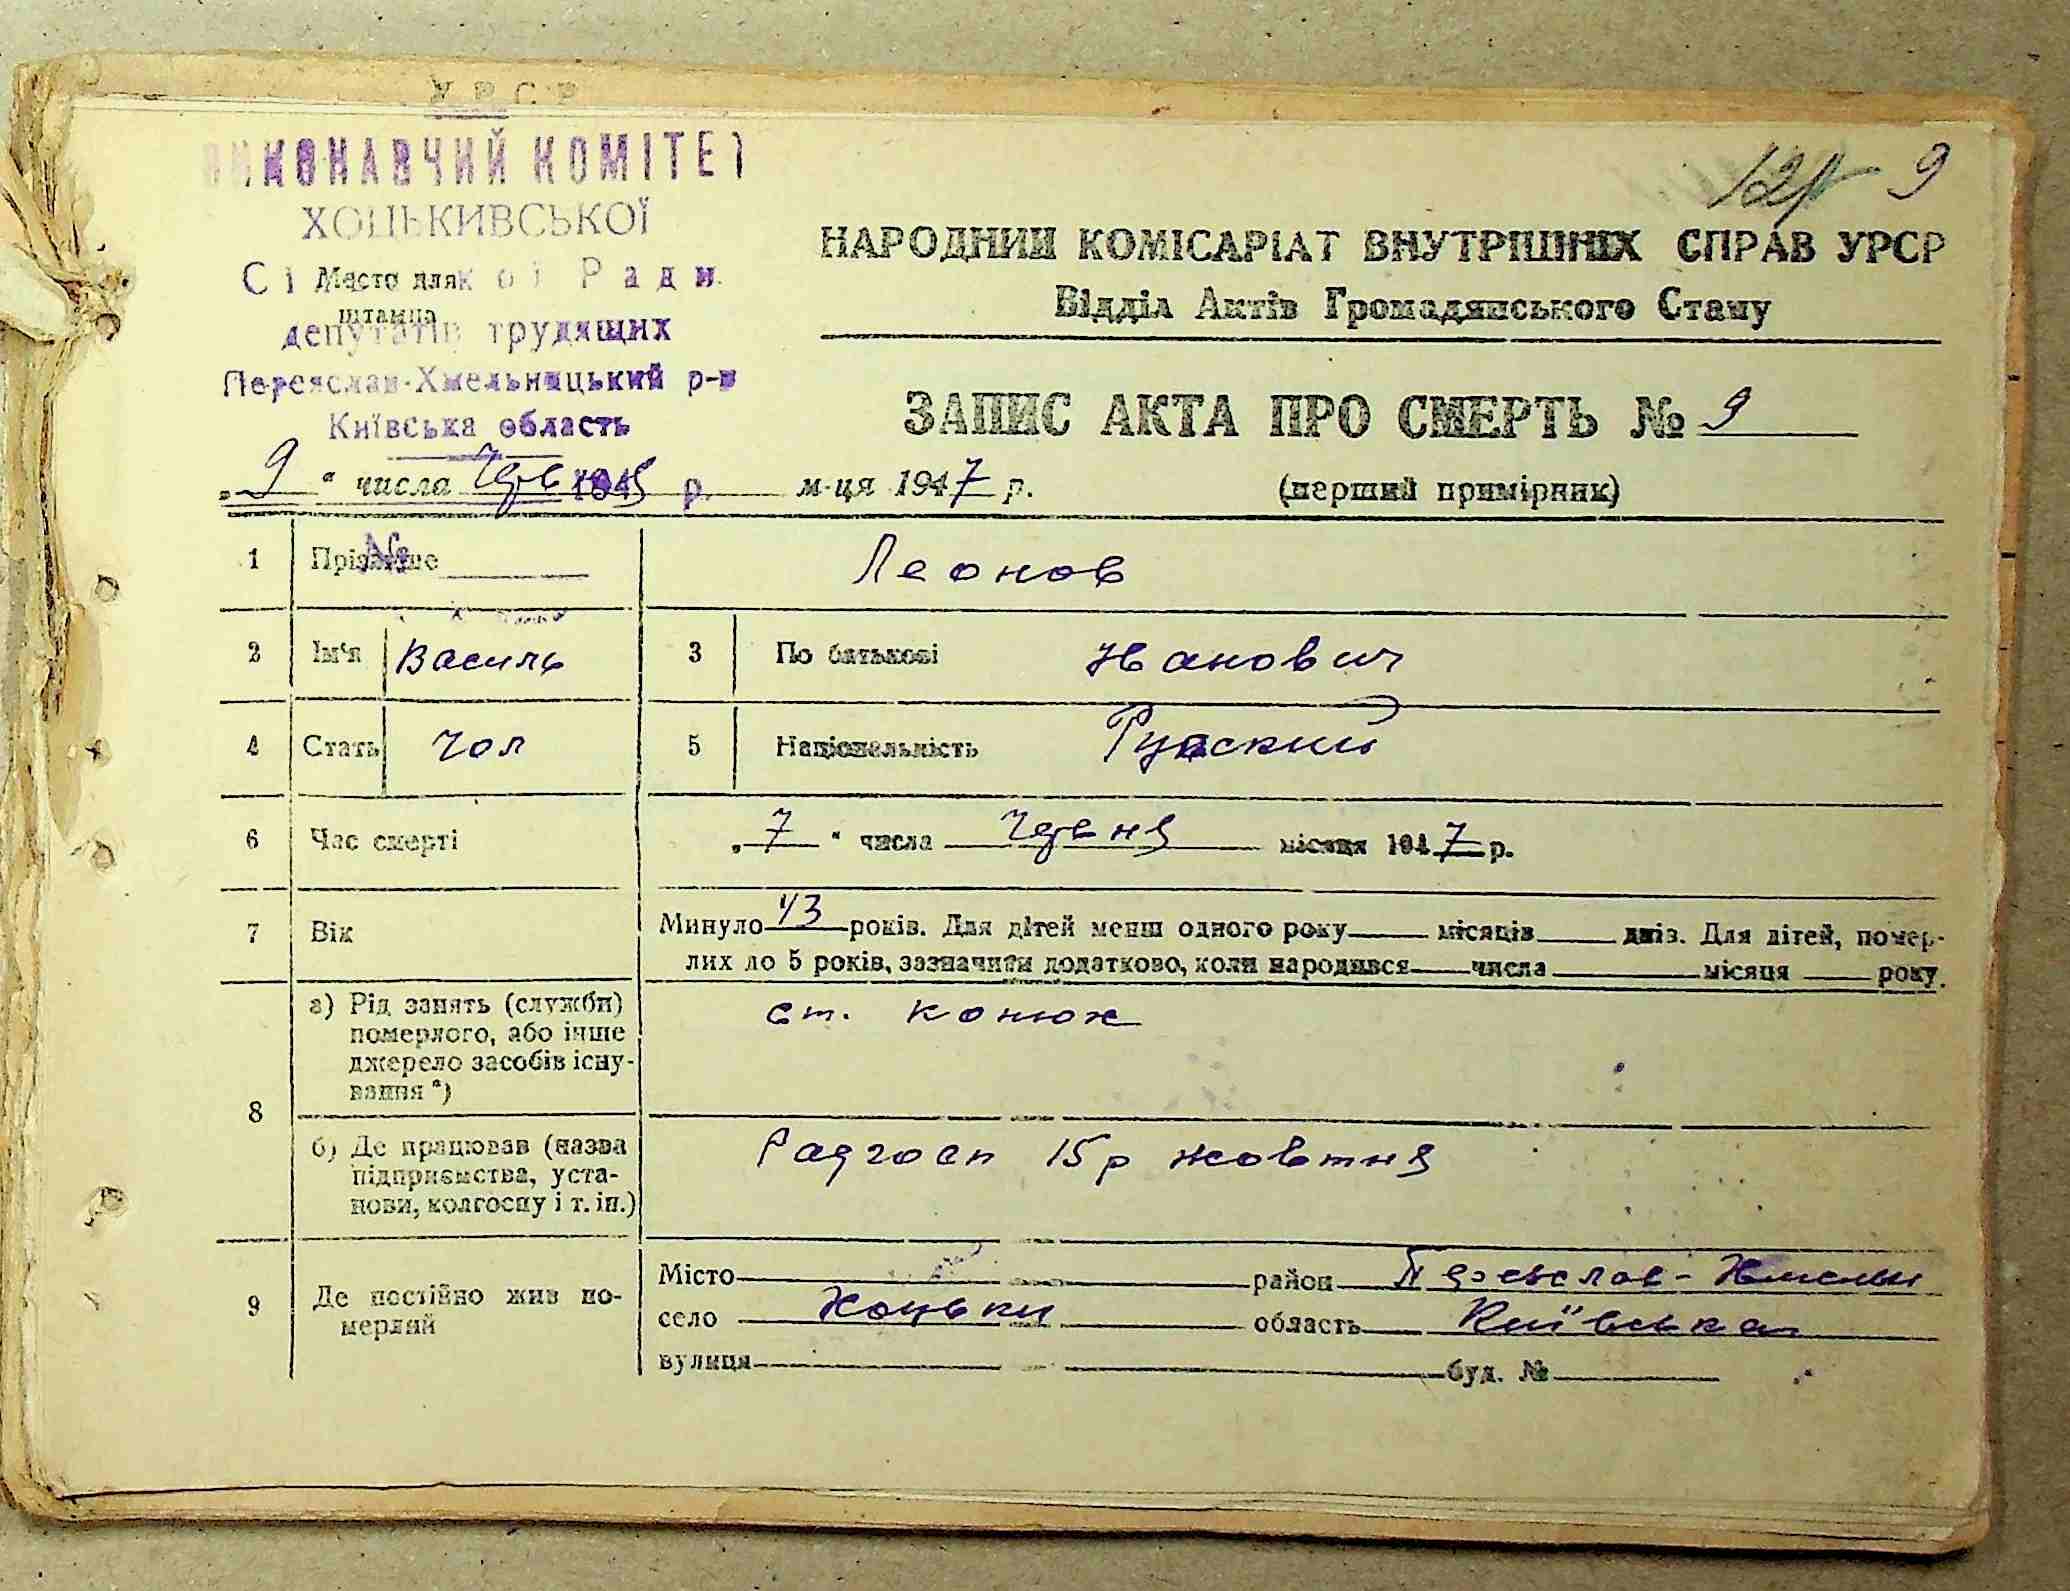 УРСР
ВИКОНАВЧИЙ КОМІТЕТ
ХОЦЬКИВСЬКОЇ
Сі кої Ради
Місто для
штампа
депутатів трудящих
Переяслав-Хмельницький р-н
Київська область
9
НАРОДНИЙ КОМІСАРІАТ ВНУТРІШНІХ СПРАВ УРСР
Відділ Актів Громадянського Стану
ЗАПИС АКТА ПРО СМЕРТЬ № 9
„ 9 “ числа Червня 194 р. м-ця 1947 р.
(перший примірник)
1 Прізвище Леонов
№
2 Ім'я Василь 3 По батькові Иванович
4 Стать чол 5 Національність Русский
6 Час смерті „ 7 “ числа Червня місяця 1947 р.
7 Вік Минуло 43 років. Для дітей менш одного року місяців днів. Для дітей, помер-
лих до 5 років, зазначити додатково, коли народився числа місяця року.
8 а) Рід занять (служби)
померлого, або інше
джерело засобів існу-
вання *)
ст. конюх
б) Де працював (назва
підприємства, уста-
нови, колгоспу і т. ін.)
Радгосп 15 р жовтня
9 Де постійно жив по-
мерлий
Місто район Переяслав-Хмельн
село Хоцьки область Київська
вулиця буд. №